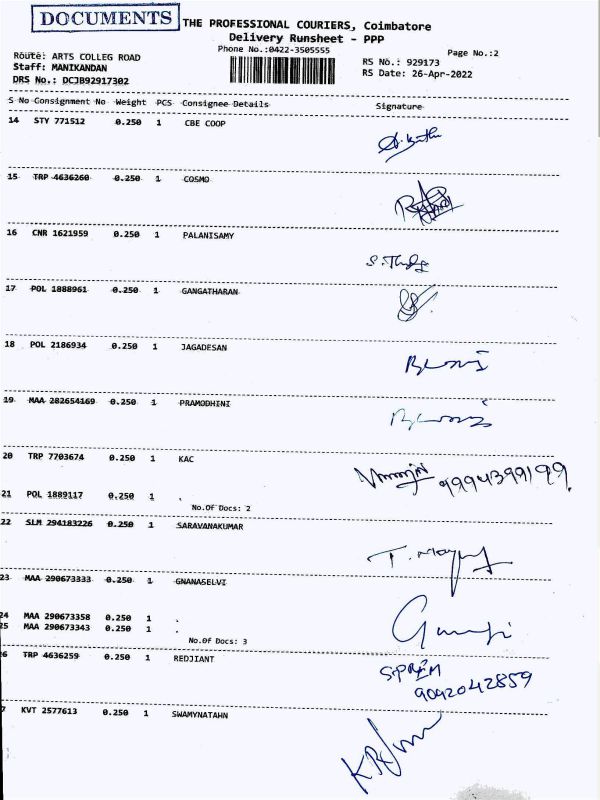 DOCUMENTS
THE PROFESSIONAL COURIERS, Coimbatore
Delivery Runsheet - PPP
Phone No.:0422-3505555
Page No.:2
Route: ARTS COLLEG ROAD
Staff: MANIKANDAN
DRS No.: DCJB92917302
RS No.: 929173
RS Date: 26-Apr-2022
S No Consignment No Weight PCS Consignee Details Signature
14 STY 771512 0.250 1 CBE COOP
15 TRP 4636260 0.250 1 COSMO
16 CNR 1621959 0.250 1 PALANISAMY
17 POL 1888961 0.250 1 GANGATHARAN
18 POL 2186934 0.250 1 JAGADESAN
19 MAA 282654169 0.250 1 PRAMODHINI
20 TRP 7703674 0.250 1 KAC
9994399199.
21 POL 1889117 0.250 1 .
No.Of Docs: 2
22 SLM 294183226 0.250 1 SARAVANAKUMAR
23 MAA 290673333 0.250 1 GNANASELVI
24 MAA 290673358 0.250 1 .
25 MAA 290673343 0.250 1 .
No.Of Docs: 3
6 TRP 4636259 0.250 1 REDJIANT
9092042859
7 KVT 2577613 0.250 1 SWAMYNATAHN